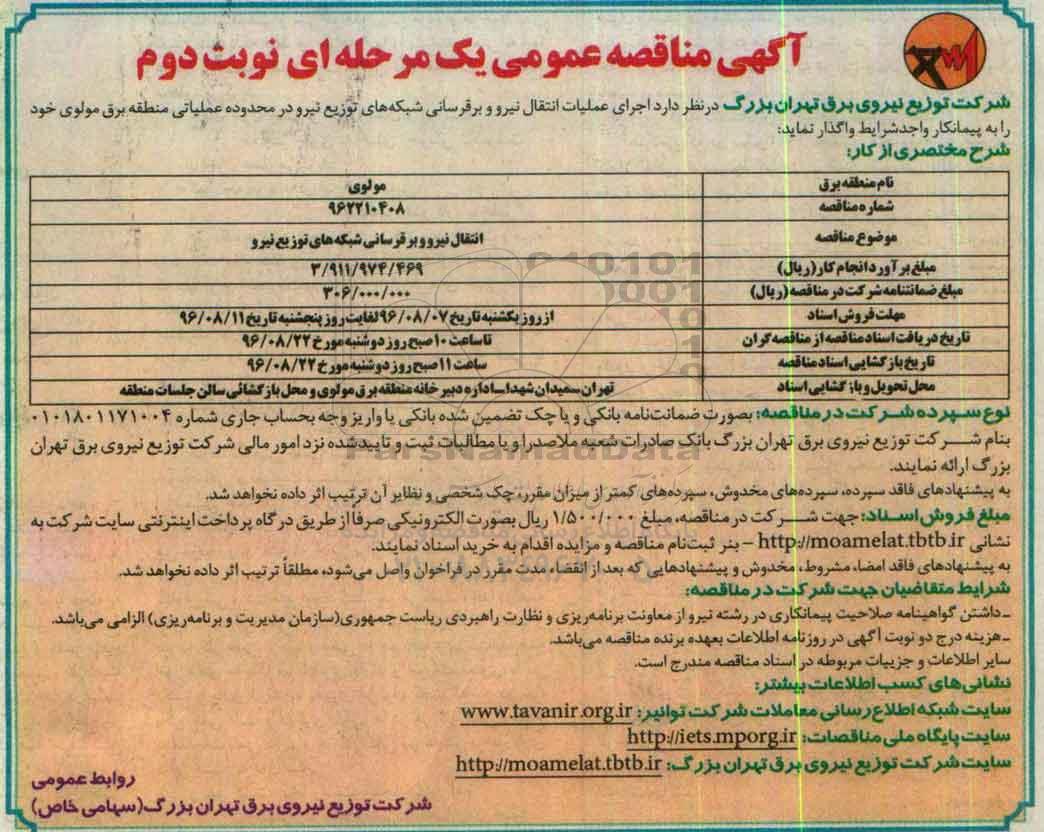 آگهی مناقصه عمومی یک مرحله ای نوبت دوم
شرکت توزیع نیروی برق تهران بزرگ درنظر دارد اجرای عملیات انتقال نیرو و برقرسانی شبکه‌های توزیع نیرو در محدوده عملیاتی منطقه برق مولوی خود
را به پیمانکار واجدشرایط واگذار نماید:
شرح مختصری از کار:
نام منطقه برق مولوی
شماره مناقصه ۹۶۲۲۱۰۴۰۸
موضوع مناقصه انتقال نیرو و برقرسانی شبکه های توزیع نیرو
مبلغ برآورد انجام کار (ریال) ۳/۹۱۱/۹۷۴/۴۶۹
مبلغ ضمانتنامه شرکت در مناقصه (ریال) ۳۰۶/۰۰۰/۰۰۰
مهلت فروش اسناد از روز یکشنبه تاریخ ۹۶/۰۸/۰۷ لغایت روز پنجشنبه تاریخ ۹۶/۰۸/۱۱
تاریخ دریافت اسناد مناقصه از مناقصه گران تا ساعت ۱۰ صبح روز دوشنبه مورخ ۹۶/۰۸/۲۲
تاریخ بازگشایی اسناد مناقصه ساعت ۱۱ صبح روز دوشنبه مورخ ۹۶/۰۸/۲۲
محل تحویل و بازگشایی اسناد تهران ـ میدان شهدا ـ اداره دبیرخانه منطقه برق مولوی و محل بازگشائی سالن جلسات منطقه
نوع سپرده شرکت در مناقصه: بصورت ضمانت‌نامه بانکی و یا چک تضمین شده بانکی یا واریز وجه بحساب جاری شماره ۰۱۰۱۸۰۱۱۷۱۰۰۴
بنام شرکت توزیع نیروی برق تهران بزرگ بانک صادرات شعبه ملاصدرا و یا مطالبات ثبت و تایید شده نزد امور مالی شرکت توزیع نیروی برق تهران
بزرگ ارائه نمایند.
به پیشنهادهای فاقد سپرده، سپرده‌های مخدوش، سپرده‌های کمتر از میزان مقرر، چک شخصی و نظایر آن ترتیب اثر داده نخواهد شد.
مبلغ فروش اسناد: جهت شرکت در مناقصه، مبلغ ۱/۵۰۰/۰۰۰ ریال بصورت الکترونیکی صرفاً از طریق درگاه پرداخت اینترنتی سایت شرکت به
نشانی http://moamelat.tbtb.ir – بنر ثبت‌نام مناقصه و مزایده اقدام به خرید اسناد نمایند.
به پیشنهادهای فاقد امضا، مشروط، مخدوش و پیشنهادهایی که بعد از انقضاء مدت مقرر در فراخوان واصل می‌شود، مطلقاً ترتیب اثر داده نخواهد شد.
شرایط متقاضیان جهت شرکت در مناقصه:
ـ داشتن گواهینامه صلاحیت پیمانکاری در رشته نیرو از معاونت برنامه‌ریزی و نظارت راهبردی ریاست جمهوری (سازمان مدیریت و برنامه‌ریزی) الزامی می‌باشد.
ـ هزینه درج دو نوبت آگهی در روزنامه اطلاعات بعهده برنده مناقصه می‌باشد.
سایر اطلاعات و جزییات مربوطه در اسناد مناقصه مندرج است.
نشانی های کسب اطلاعات بیشتر:
سایت شبکه اطلاع رسانی معاملات شرکت توانیر: www.tavanir.org.ir
سایت پایگاه ملی مناقصات: http://iets.mporg.ir
سایت شرکت توزیع نیروی برق تهران بزرگ: http://moamelat.tbtb.ir
روابط عمومی
شرکت توزیع نیروی برق تهران بزرگ (سهامی خاص)
ParsNamadData